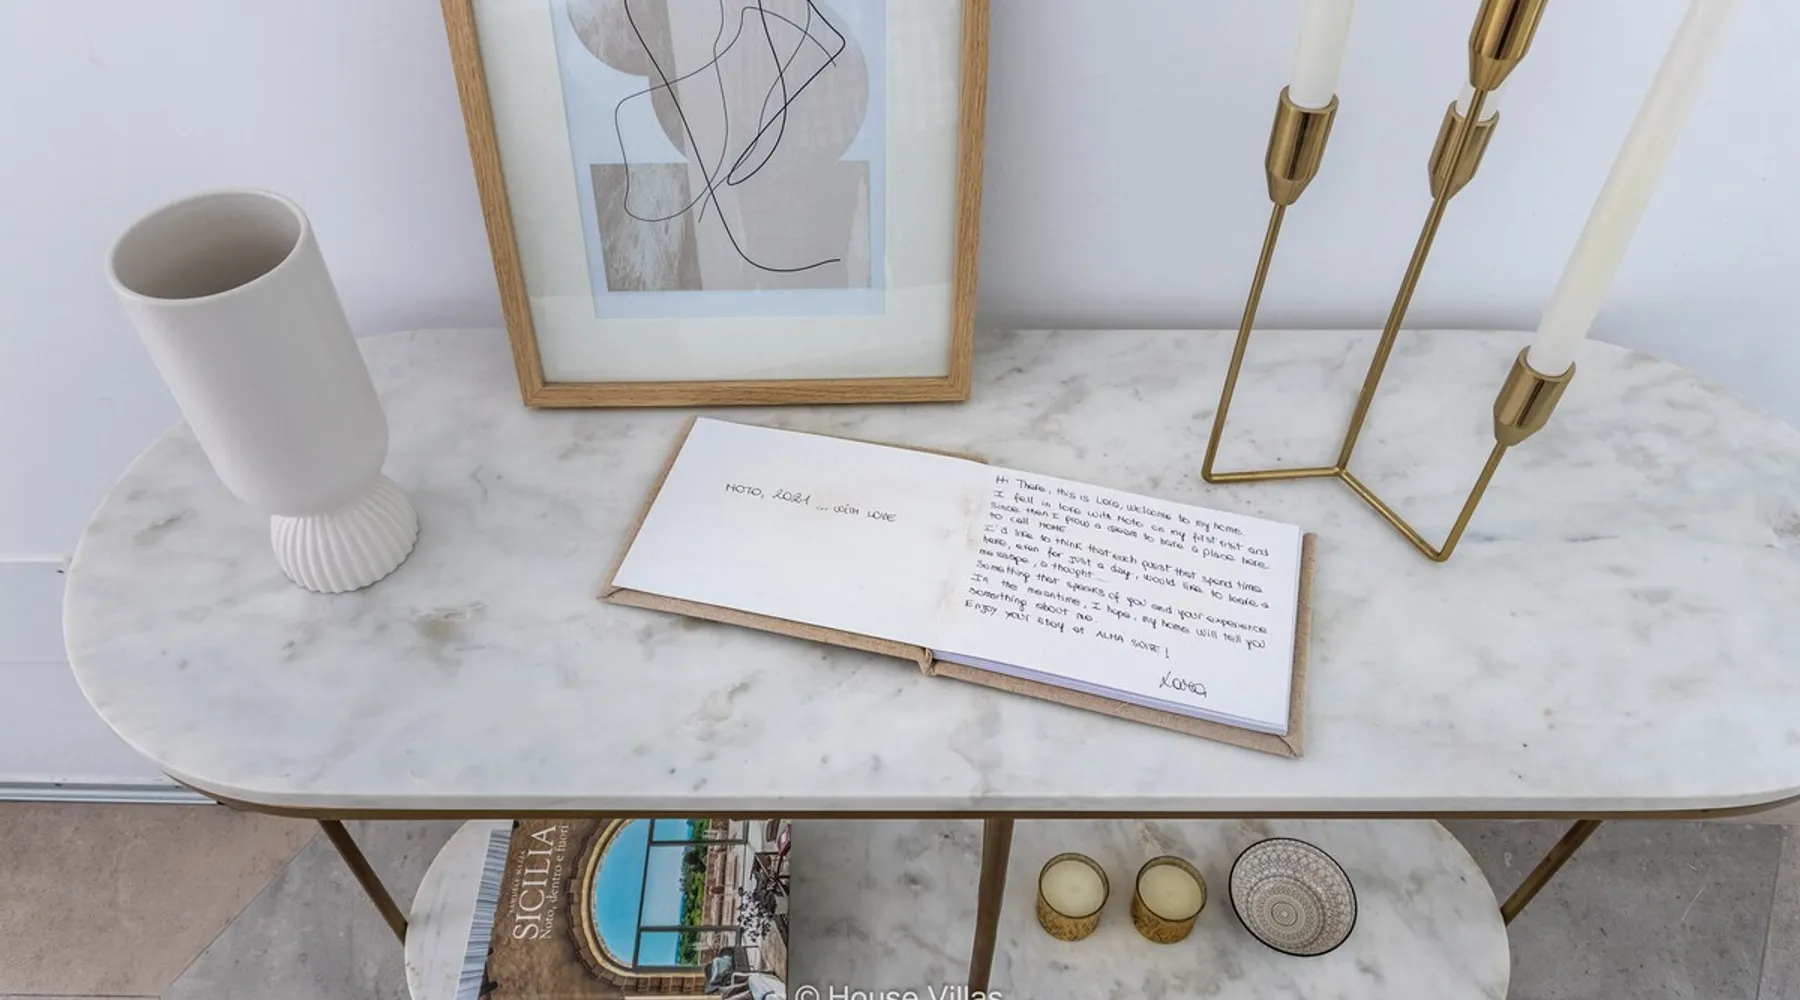 NOTO, 2021 ... WITH LOVE
Hi There, this is Lara, welcome to my home.
I fell in love with Noto on my first visit and
since then I grow a dream to have a place here
to call HOME.
I'd like to think that each guest that spend time
here, even for just a day, would like to leave a
message, a thought...
Something that speaks of you and your experience
In the meantime, I hope, my home will tell you
something about me.
Enjoy your stay at ALMA SUITE!
Lara
SICILIA
Noto, dentro e fuori
© House Villas